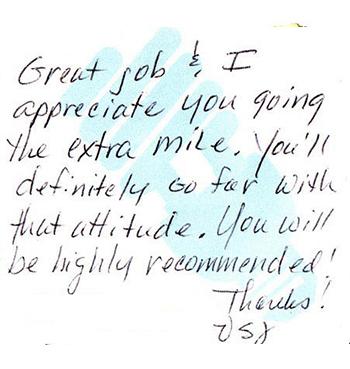 Great job & I
appreciate you going
the extra mile. You'll
definitely go far with
that attitude. You will
be highly recommended!
Thanks!